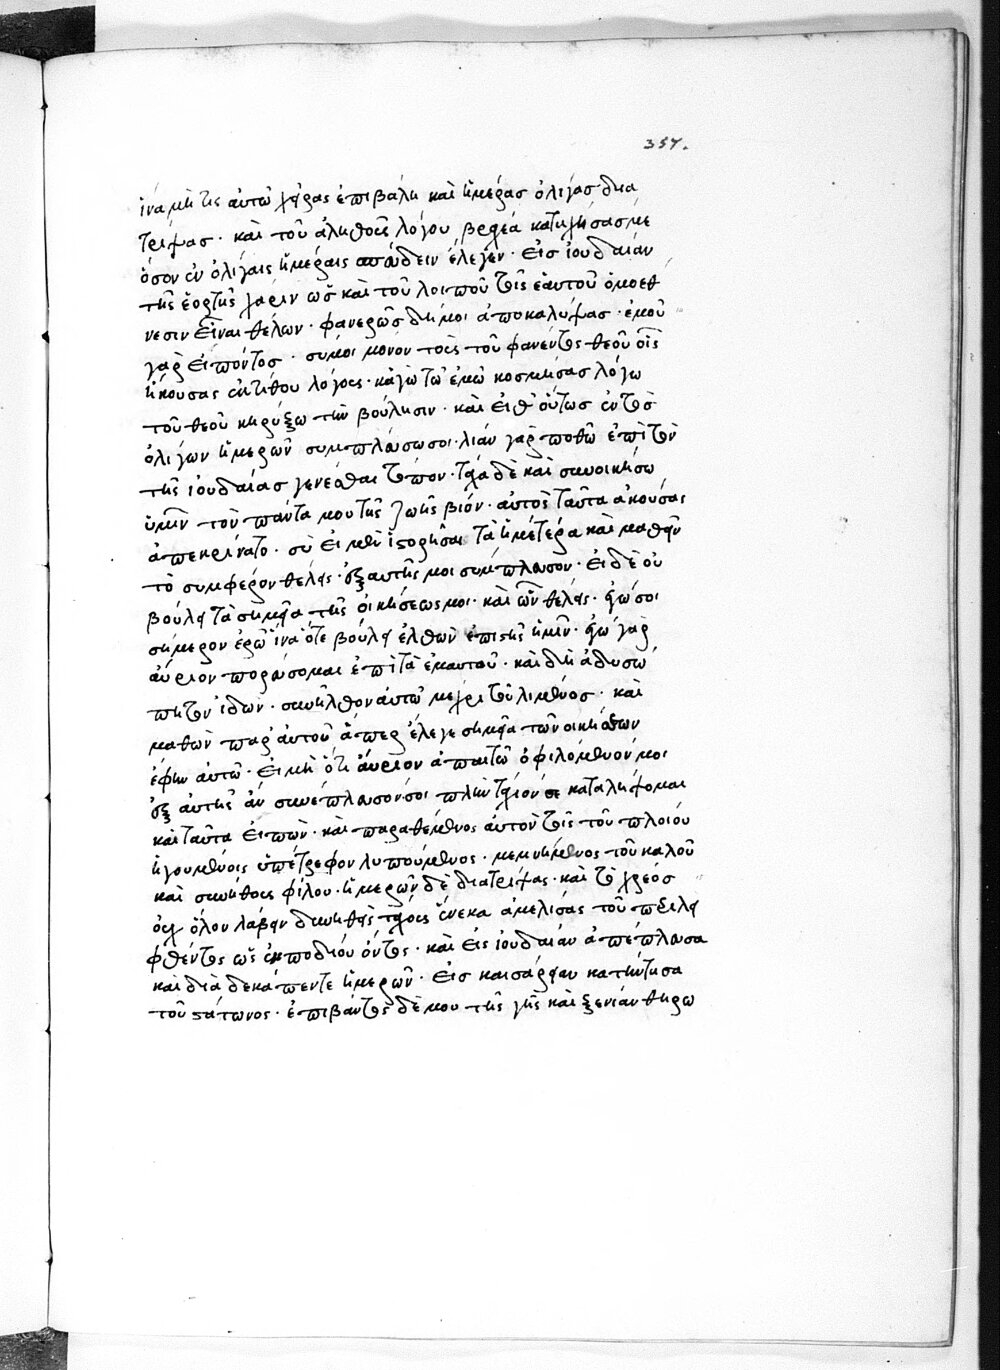 357.
ἵνα μή τις αὐτῷ χεῖρας ἐπιβάλη καὶ ἡμέρας ὀλίγας δια
τρίψας· καὶ τοῦ ἀληθοῦς λόγου βραχέα κατηχήσας με
ὅσον ἐν ὀλίγαις ἡμέραις σπεύδειν ἔλεγεν· εἰς ἰουδαίαν
τῆς ἑορτῆς χάριν ὡς καὶ τοῦ λοιποῦ τοῖς ἑαυτοῦ ὁμοεθ
νεσιν εἶναι θέλων· φανερῶς δή μοι ἀποκαλύψας· ἐμοῦ
γὰρ εἰπόντος· σύ μοι μόνον τοὺς τοῦ φανέντος θεοῦ οὓς
ἤκουσας ἐντίθου λόγους· κἀγὼ τῷ ἐμῷ κοσμήσας λόγω
τοῦ θεοῦ κηρύξω τὴν βούλησιν· καὶ εἰθ' οὕτως ἐντὸς
ὀλίγων ἡμερῶν συμπλεύσω σοι· λίαν γὰρ ποθῶ ἐπὶ τὸν
τῆς ἰουδαίας γενέσθαι τόπον· τάχα δὲ καὶ συνοικήσω
ὑμῖν τὸν πάντα μου τῆς ζωῆς βίον· αὐτὸς ταῦτα ἀκούσας
ἀπεκρίνατο· σὺ εἰ μὲν ἱστορῆσαι τὰ ἡμέτερα καὶ μαθεῖν
τὸ συμφέρον θέλεις· ἐξαυτῆς μοι σύμπλευσον· εἰ δὲ οὐ
βούλει τὰ σημεῖα τῆς οἰκήσεώς μου· καὶ ὧν θέλεις· ἐγώ σοι
σήμερον ἐρῶ ἵνα ὅτε βούλει ἐλθὼν ἐπιστῆς ἡμῖν· ἐγὼ γὰρ
αὔριον πορεύσομαι ἐπὶ τὰ ἐμαυτοῦ· καὶ δὴ ἀδυσώ
πητον ἰδών· συνῆλθον αὐτῷ μέχρι τοῦ λιμένος· καὶ
μαθὼν παρ' αὐτοῦ ἅπερ ἔλεγε σημεῖα τῶν οἰκήσεων
ἔφην αὐτῷ· εἰ μὴ ὅτι αὔριον ἀπαιτῶ ὀφειλόμενόν μοι
ἐξ αὐτῆς ἂν συνέπλευσόν σοι πλὴν τάχιόν σε καταλήψομαι
καὶ ταῦτα εἰπών· καὶ παραθέμενος αὐτὸν τοῖς τοῦ πλοίου
ἡγουμένοις ὑπέστρεφον λυπούμενος· μεμνημένος τοῦ καλοῦ
καὶ συνήθους φίλου· ἡμερῶν δὲ διατρίψας· καὶ τὸ χρέος
οὐχ ὅλον λαβεῖν δυνηθεὶς τάχους ἕνεκα ἀμελίσας τοῦ περιλει
φθέντος ὡς ἐμποδίου ὄντος· καὶ εἰς ἰουδαίαν ἀπέπλευσα
καὶ διὰ δεκάπεντε ἡμερῶν· εἰς καισάρειαν κατήντησα
τοῦ στάτωνος· ἐπιβάντος δέ μου τῆς γῆς καὶ ξενίαν θηρω